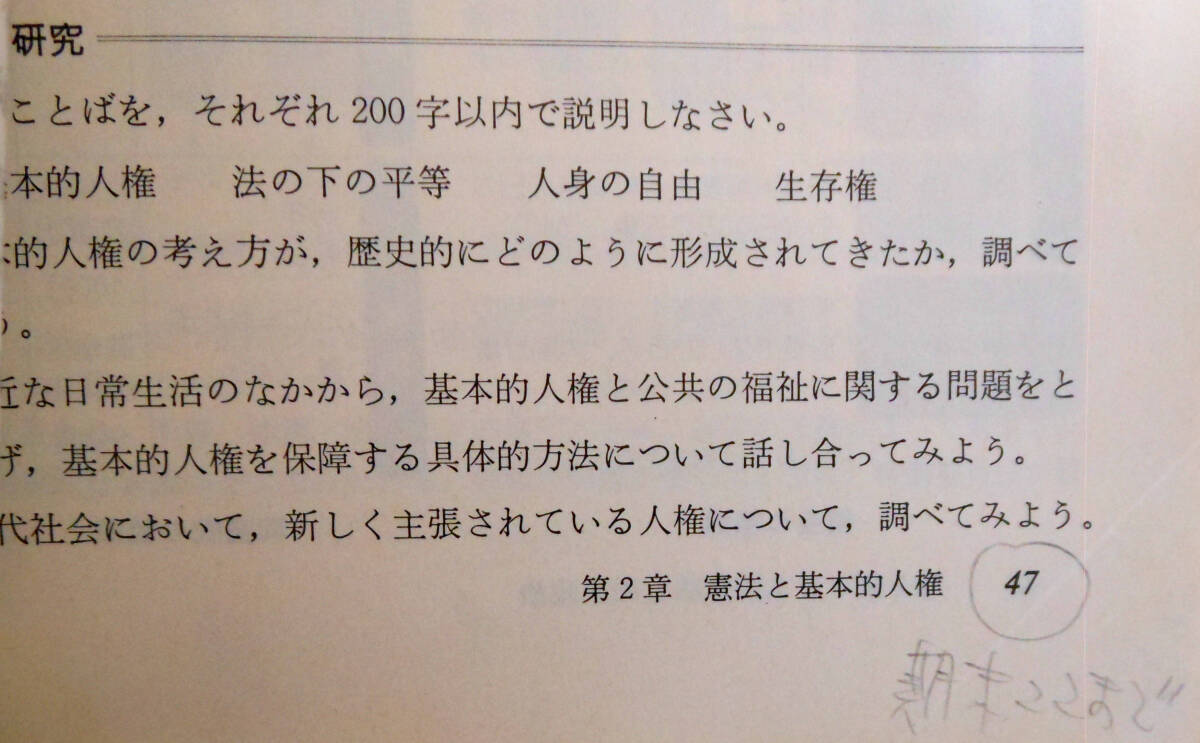 研究
ことばを，それぞれ200字以内で説明しなさい。
本的人権　法の下の平等　人身の自由　生存権
的人権の考え方が，歴史的にどのように形成されてきたか，調べて
。
近な日常生活のなかから，基本的人権と公共の福祉に関する問題をと
げ，基本的人権を保障する具体的方法について話し合ってみよう。
代社会において，新しく主張されている人権について，調べてみよう。
第2章　憲法と基本的人権　47
期末ここまで